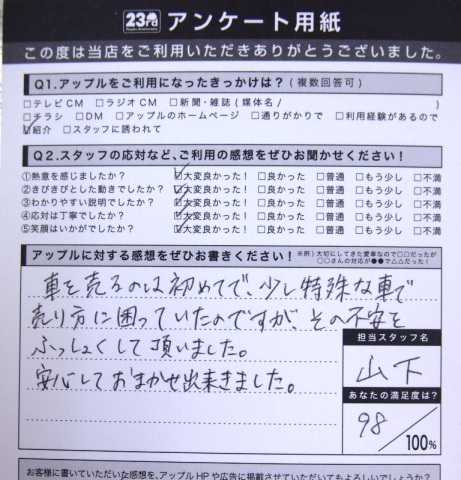 23rd アンケート用紙
この度は当店をご利用いただきありがとうございました。
Q1.アップルをご利用になったきっかけは?(複数回答可)
□テレビCM □ラジオCM □新聞・雑誌(媒体名/ )
□チラシ □DM □アップルのホームページ □通りがかりで □利用経験があるので
☑紹介 □スタッフに誘われて
Q2.スタッフの応対など、ご利用の感想をぜひお聞かせください!
①熱意を感じましたか? ☑大変良かった! □良かった □普通 □もう少し □不満
②きびきびとした動きでしたか? ☑大変良かった! □良かった □普通 □もう少し □不満
③わかりやすい説明でしたか? ☑大変良かった! □良かった □普通 □もう少し □不満
④応対は丁寧でしたか? ☑大変良かった! □良かった □普通 □もう少し □不満
⑤笑顔はいかがでしたか? ☑大変良かった! □良かった □普通 □もう少し □不満
アップルに対する感想をぜひお書きください! ※例)大切にしてきた愛車なので□□だったが
○○さんの対応が●●で△△だった!
車を売るのは初めてで、少し特殊な車で
売り方に困っていたのですが、その不安を
ふっしょくして頂いました。
安心しておまかせ出来きました。
担当スタッフ名
山下
あなたの満足度は?
98/100%
お客様に書いていただいた感想を、アップルHPや広告に掲載させていただいてもよろしいでしょうか?